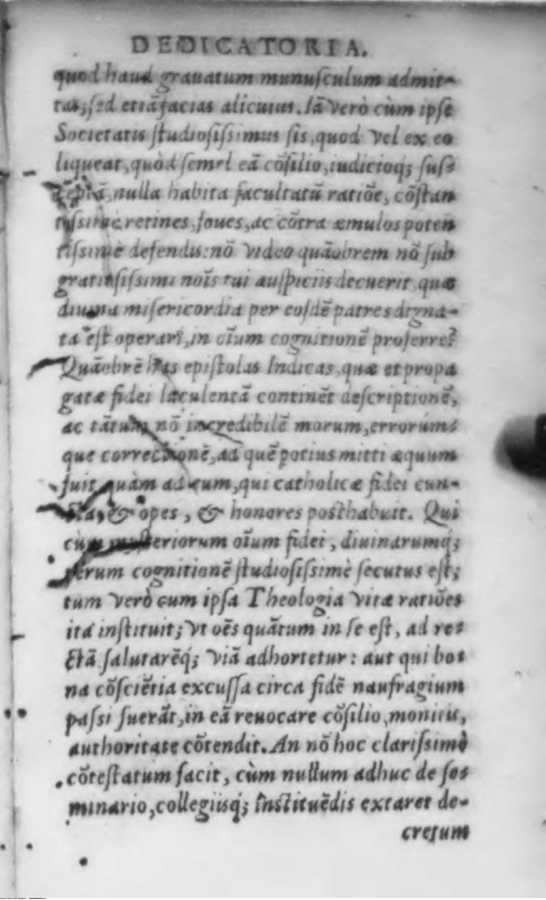 DEDICATORIA.
quod haud grauatum munusculum admit-
tas; sed etiā facias alicuius. Iā verò cùm ipse
Societatis studiosissimus sis, quod vel ex eo
liqueat, quòd semel eā cōsilio, iudicioq; sus-
ceptā, nulla habita facultatū ratiōe, cōstan
tissimè retines, foues, ac cōtra æmulos poten
tissimè defendis: nō video quāobrem nō sub
gratiosissimi noīs tui auspiciis decuerit, quæ
diuina misericordia per eosdē patres digna-
ta est operari, in oīum cognitionē proferre?
Quāobrē has epistolas Indicas, quæ et propa
gatæ fidei luculentā continēt descriptionē,
ac tātum nō incredibilē morum, errorum-
que correctionē, ad quē potius mitti æquum
fuit, quàm ad eum, qui catholicæ fidei cun-
cta, & opes, & honores posthabuit. Qui
cùm mysteriorum oīum fidei, diuinarumq;
rerum cognitionē studiosissimè secutus est;
tum verò cum ipsa Theologia vitæ ratiōes
ita instituit; vt oēs quātum in se est, ad re-
ctā salutarēq; viā adhortetur: aut qui bo-
na cōsciētia excussa circa fidē naufragium
passi fuerāt, in eā reuocare cōsilio, monitis,
authoritate cōtendit. An nō hoc clarissimè
cōtestatum facit, cùm nullum adhuc de se-
minario, collegiisq; instituēdis extaret de-
cretum